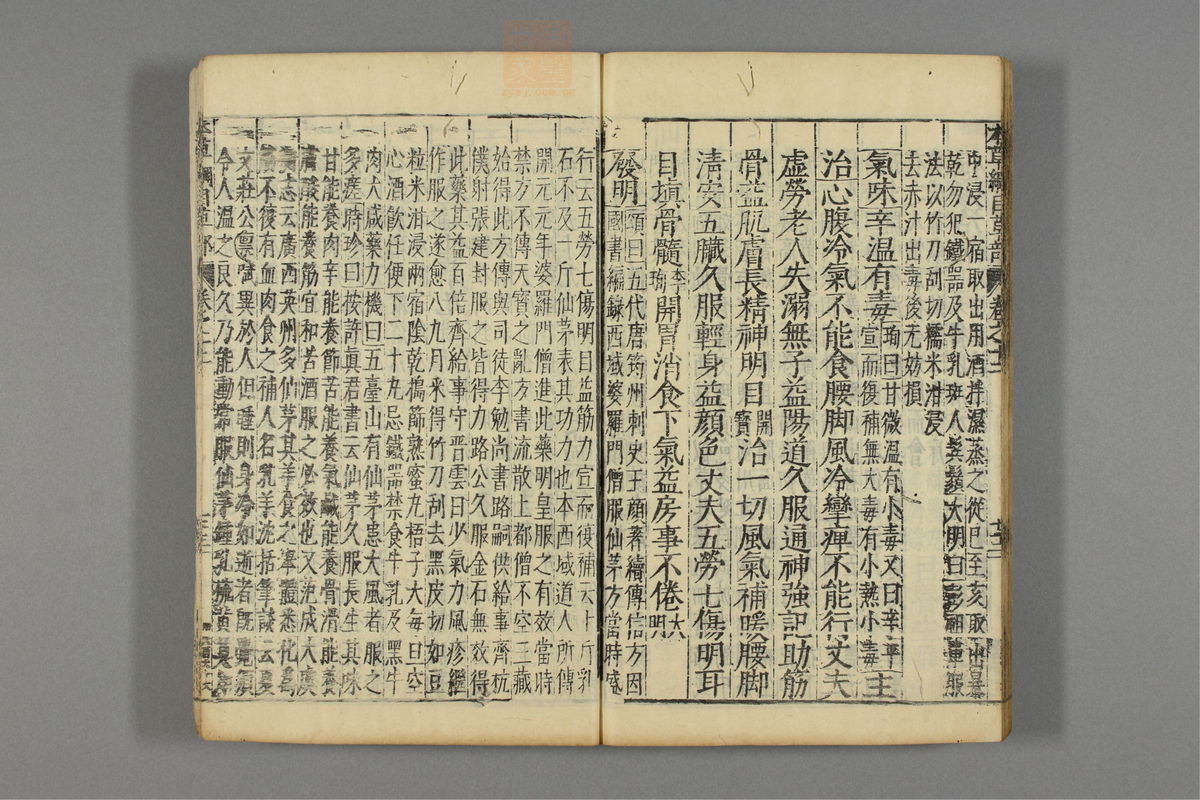 本草綱目草部 卷之十二
中浸一宿取出用酒拌濕蒸之從巳至亥取出暴
乾勿犯鐵器及牛乳斑人鬢鬚大明曰彭祖單服
法以竹刀刮切糯米泔浸
去赤汁出毒後无妨損
氣味辛温有毒珣曰甘微温有小毒又曰辛平宣而復補無大毒有小熱小毒主
治心腹冷氣不能食腰脚風冷攣痺不能行丈夫
虛勞老人失溺無子益陽道久服通神強記助筋
骨益肌膚長精神明目開寶治一切風氣補暖腰脚
清安五臟久服輕身益顏色丈夫五勞七傷明耳
目填骨髓李珣開胃消食下氣益房事不倦大明
發明頌曰五代唐筠州刺史王顏著續傳信方因
國書編録西域婆羅門僧服仙茅方當時盛
行云五勞七傷明目益筋力宣而復補云十斤乳
石不及一斤仙茅表其功力也本西域道人所傳
開元元年婆羅門僧進此藥明皇服之有效當時
禁方不傳天寶之亂方書流散上都僧不空三藏
始得此方傳與司徒李勉尚書路嗣供給事齊杭
僕射張建封服之皆得力路公久服金石無效得
此藥其益百倍齊給事守晋雲日少氣力風疹繼
作服之遂愈八九月采得竹刀刮去黑皮切如豆
粒米泔浸兩宿陰乾搗篩熟蜜丸梧子大每旦空
心酒飲任便下二十丸忌鐵器禁食牛乳及黑牛
肉大減藥力機曰五臺山有仙茅患大風者服之
多瘥時珍曰按許真君書云仙茅久服長生其味
甘能養肉辛能養節苦能養氣鹹能養骨滑能養
膚酸能養筋宜和苦酒服之必效也又范成大虞
衡志云廣西英州多仙茅其羊食之舉體悉化為
筋不復有血肉食之補人名乳羊沈括筆談云夏
文莊公禀賦異於人但睡則身冷如逝者既覺須
令人温之良久乃能動常服仙茅鍾乳硫黃莫
本草綱目草部 卷之十二